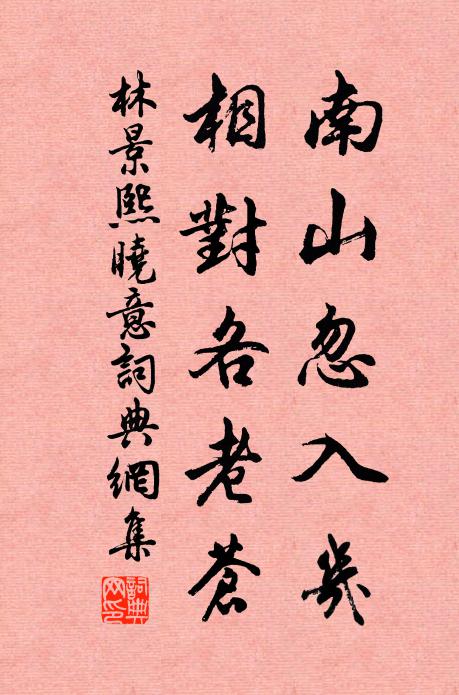 南山忽入几
相對各老蒼
林景熙曉意詞典網集
詞典网印